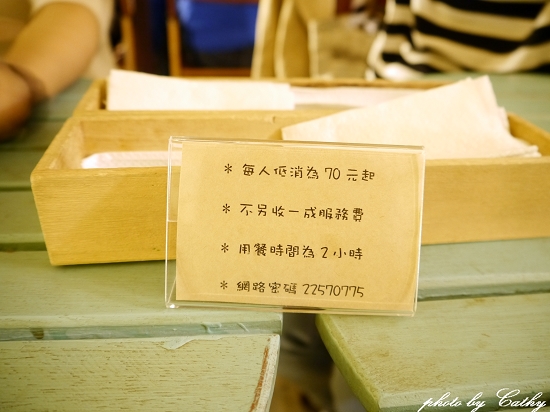 * 每人低消為 70 元起
* 不另收一成服務費
* 用餐時間為 2 小時
* 網路密碼 22570775
photo by Cathy